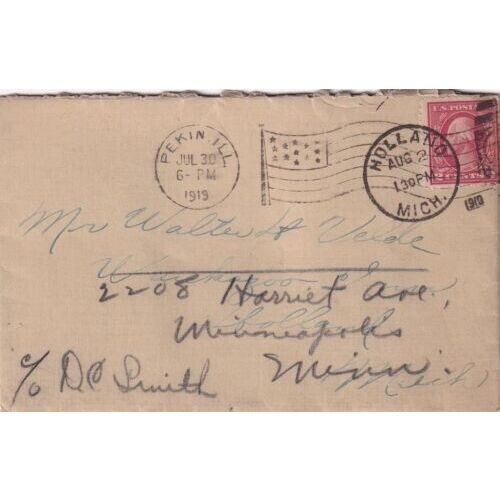 PEKIN, ILL.
JUL 30
6 - PM
1919
HOLLAND
AUG 2
130PM
MICH.
1919
U.S. POSTAGE
2 CENTS 2
Mr Walter H Velde
2208 Harriet Ave.,
Minneapolis
Minn.
Mich
c/o D.C. Smith